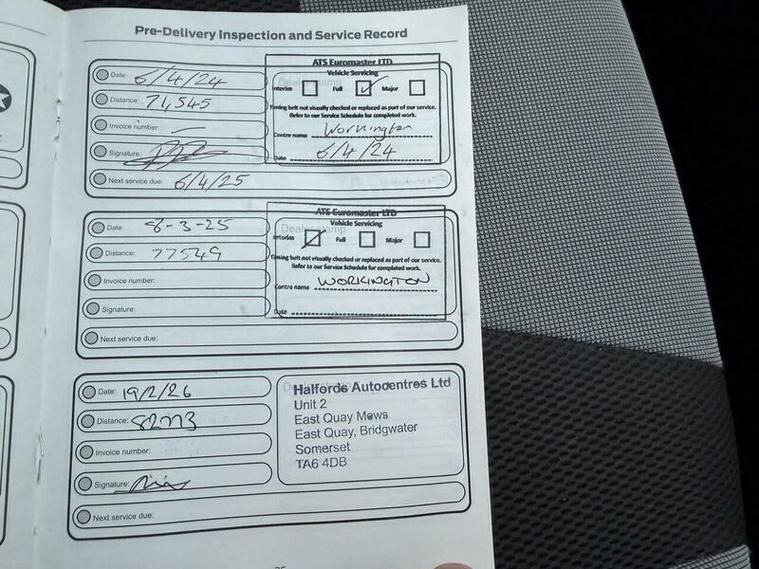 Pre-Delivery Inspection and Service Record
Date: 6/4/24
Distance: 74,545
Invoice number:
Signature:
Next service due: 6/4/25
ATS Euromaster LTD
Vehicle Servicing
Interim Full Major
Timing belt not visually checked or replaced as part of our service.
Refer to our Service Schedule for completed work.
Centre name Workington
Date 6/4/24
Date: 8-3-25
Distance: 77549
Invoice number:
Signature:
Next service due:
ATS Euromaster LTD
Vehicle Servicing
Interim Full Major
Timing belt not visually checked or replaced as part of our service.
Refer to our Service Schedule for completed work.
Centre name WORKINGTON
Date
Date: 19/2/26
Distance:
Invoice number:
Signature:
Next service due:
Halfords Autocentres Ltd
Unit 2
East Quay Mews
East Quay, Bridgwater
Somerset
TA6 4DB